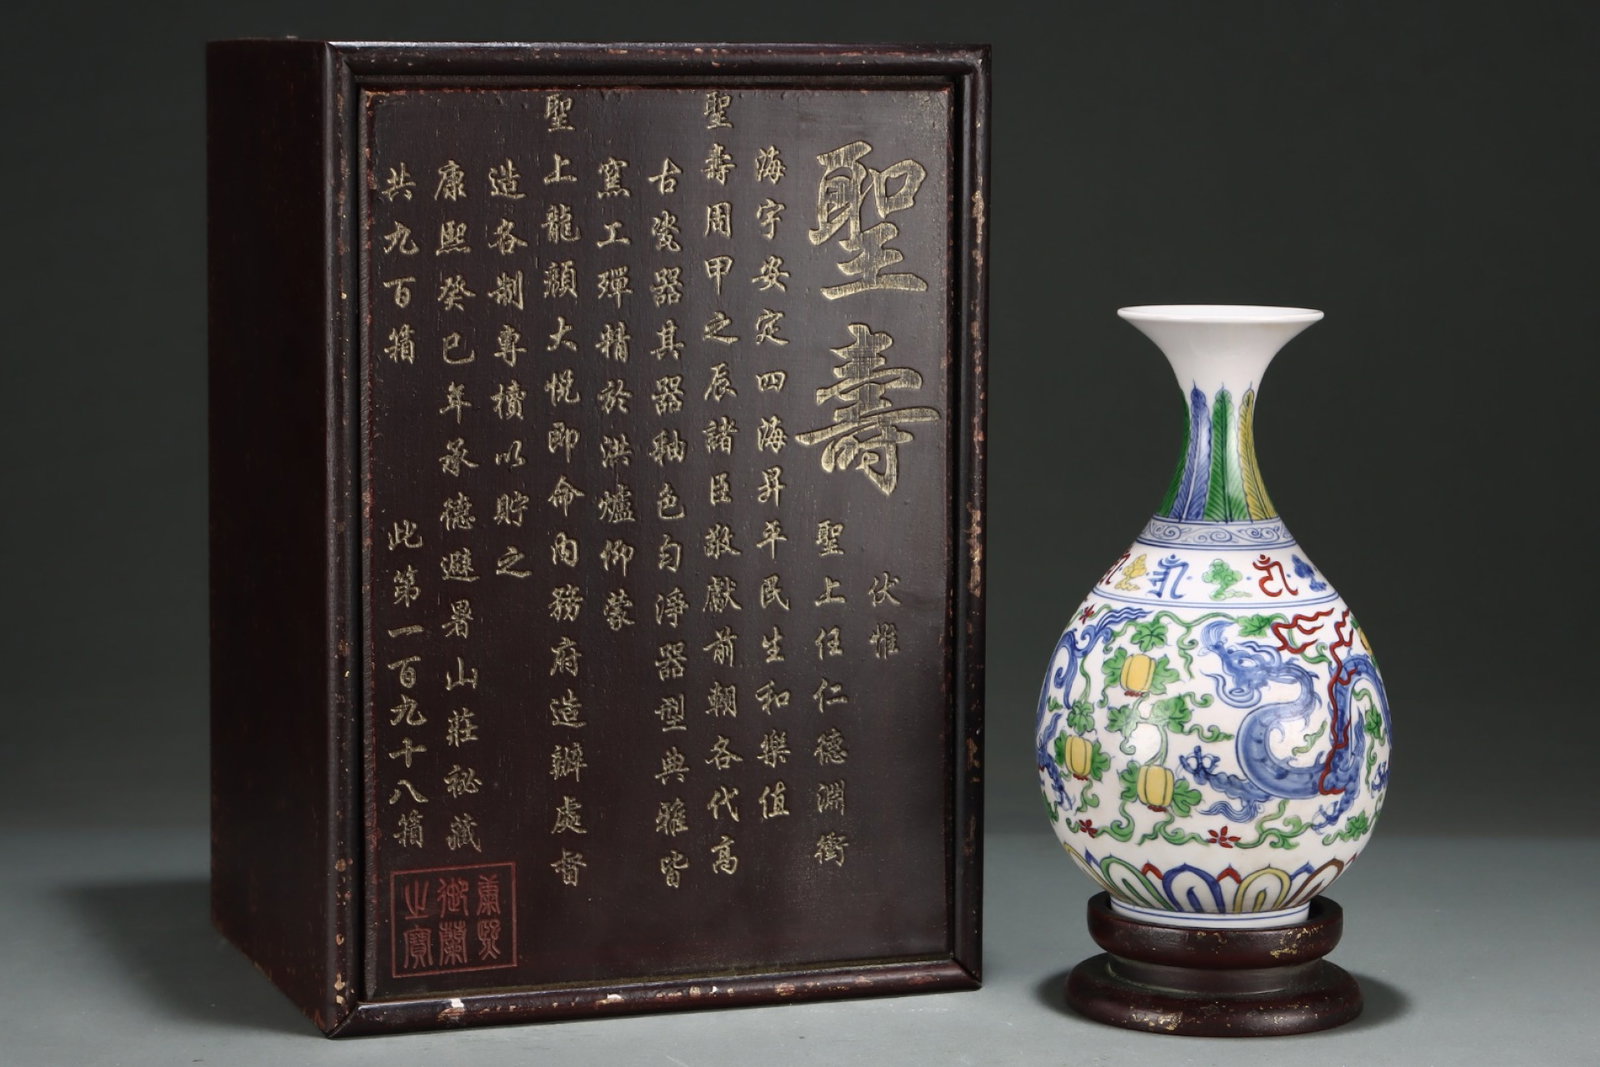 聖壽
伏惟
聖上任仁德淵衝
海宇安定四海昇平民生和樂值
聖壽周甲之辰諸臣敬獻前朝各代高
古瓷器其器釉色勻淨器型典雅皆
窯工殫精於洪爐仰蒙
聖上龍顏大悅即命內務府造辦處督
造各制專櫝以貯之
康熙癸巳年承德避暑山莊祕藏
共九百箱 此第一百九十八箱
康熙
御覽
之寶